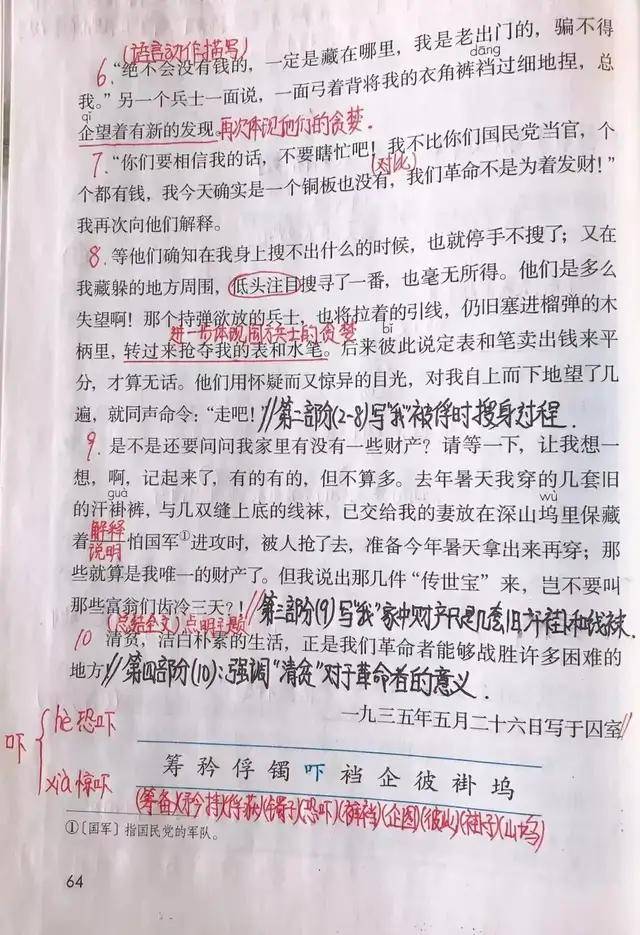 (语言动作描写)
6.“绝不会没有钱的，一定是藏在哪里，我是老出门的，骗不得
dāng
我。”另一个兵士一面说，一面弓着背将我的衣角裤裆过细地捏，总
qǐ
企望着有新的发现。再次体现他们的贪婪.
7.“你们要相信我的话，不要瞎忙吧！我不比你们国民党当官，个
(对比)
个都有钱，我今天确实是一个铜板也没有，我们革命不是为着发财！”
我再次向他们解释。
8.等他们确知在我身上搜不出什么的时候，也就停手不搜了；又在
我藏躲的地方周围，低头注目搜寻了一番，也毫无所得。他们是多么
失望啊！那个持弹欲放的兵士，也将拉着的引线，仍旧塞进榴弹的木
进一步体现国方兵士的贪婪
bǐ
柄里，转过来抢夺我的表和水笔。后来彼此说定表和笔卖出钱来平
分，才算无话。他们用怀疑而又惊异的目光，对我自上而下地望了几
遍，就同声命令：“走吧！”//第二部分(2-8)写“我”被俘时搜身过程.
9.是不是还要问问我家里有没有一些财产？请等一下，让我想一
想，啊，记起来了，有的有的，但不算多。去年暑天我穿的几套旧
guà
wù
的汗褂裤，与几双缝上底的线袜，已交给我的妻放在深山坞里保藏
解释说明
着——怕国军①进攻时，被人抢了去，准备今年暑天拿出来再穿；那
些就算是我唯一的财产了。但我说出那几件“传世宝”来，岂不要叫
那些富翁们齿冷三天？！//第三部分(9)写“我”家中财产只是几套旧汗褂和线袜.
(总结全文)点明主题
10 清贫，洁白朴素的生活，正是我们革命者能够战胜许多困难的
地方！//第四部分(10)：强调“清贫”对于革命者的意义.
一九三五年五月二十六日写于囚室
吓
hè 恐吓
xià 惊吓
筹 矜 俘 镯 吓 裆 企 彼 褂 坞
(筹备)(矜持)(俘获)(镯子)(恐吓)(裤裆)(企图)(彼此)(褂子)(山坞)
①〔国军〕指国民党的军队。
64